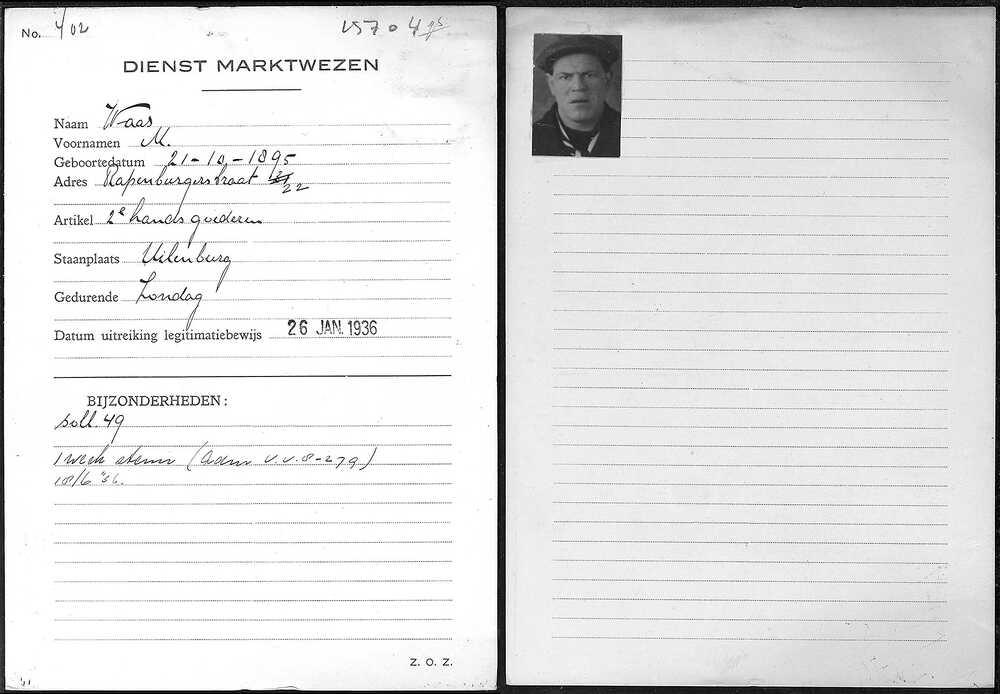 No. 402
DIENST MARKTWEZEN
Naam Waas
Voornamen M.
Geboortedatum 21-10-1895
Adres Rapenburgerstraat 22
Artikel 2e hands goederen
Staanplaats Uilenburg
Gedurende Zondag
Datum uitreiking legitimatiebewijs 26 JAN. 1936
BIJZONDERHEDEN:
soll. 49
1 week (adm v.v. 8-279)
18/6 '36.
Z. O. Z.